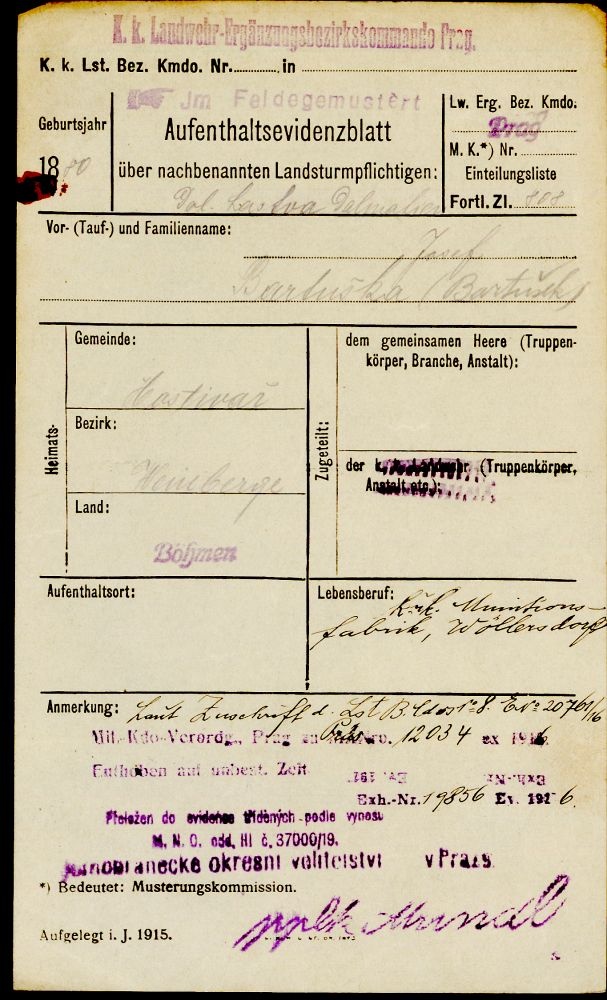 K. k. Landwehr-Ergänzungsbezirkskommando Prag.
K. k. Lst. Bez. Kmdo. Nr. in
Jm Feldegemustert
Geburtsjahr
1880
Aufenthaltsevidenzblatt
über nachbenannten Landsturmpflichtigen:
Dol. Lastva Dalmatien
Lw. Erg. Bez. Kmdo.
Prag
M. K.*) Nr.
Einteilungsliste
Fortl. Zl. 808
Vor- (Tauf-) und Familienname:
Josef
Bartuška (Bartušek)
Heimats-
Gemeinde:
Hostivař
Bezirk:
Weinberge
Land:
Böhmen
Zugeteilt:
dem gemeinsamen Heere (Truppen-
körper, Branche, Anstalt):
der k. k. Landwehr (Truppenkörper,
Anstalt etc.):
Aufenthaltsort:
Lebensberuf:
k.u.k. Munitions-
fabrik, Wöllersdorf
Anmerkung: Laut Zuschrift d. Lst. B. Kdos No 8. E. No 20761/16
Mil.-Kdo-Verordg., Prag 12034 ex 1916
Enthoben auf unbest. Zeit
Exh.-Nr. 19856 Ev. 1916.
Přeložen do evidence tříděných podle vynosu
M. N. O. odd. HI č. 37000/19.
okresní velitelství v Praze
*) Bedeutet: Musterungskommission.
Aufgelegt i. J. 1915.